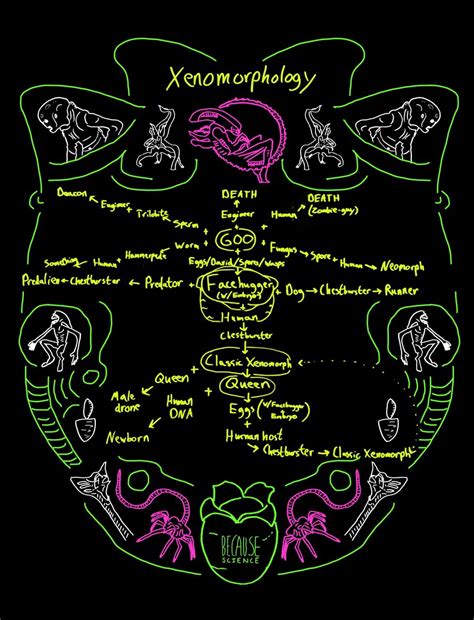 Xenomorphology
DEATH
Deacon ← Engineer ← Trilobite ← Sperm
Engineer
Human → DEATH
(Zombie-guy)
GOO
Something ← Human ← Hammerpede ← Worm
Fungus → Spore → Human → Neomorph
Eggs/David/Spores/Wasps
Predalien ← Chestburster ← Predator ← Facehugger + Dog → Chestburster → Runner
(w/Embryo)
+
Human
Chestburster
Classic Xenomorph
Queen
Queen
Male drone
Human DNA
Newborn
Eggs (w/Facehugger + Embryo)
+
Human host
Chestburster → Classic Xenomorph
BECAUSE
SCIENCE